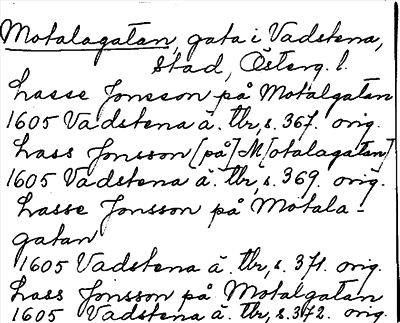 Motalagatan, gata i Vadstena,
stad, Österg. l.
Lasse Jonsson på Motalgatan
1605 Vadstena ä. tbr, s. 367. orig.
Lass Jonsson [på] M[otalagatan]
1605 Vadstena ä. tbr, s. 369. orig.
Lasse Jonsson på Motala-
gatan
1605 Vadstena ä. tbr, s. 371. orig.
Lass Jonsson på Motalgatan
1605 Vadstena ä. tbr, s. 372. orig.